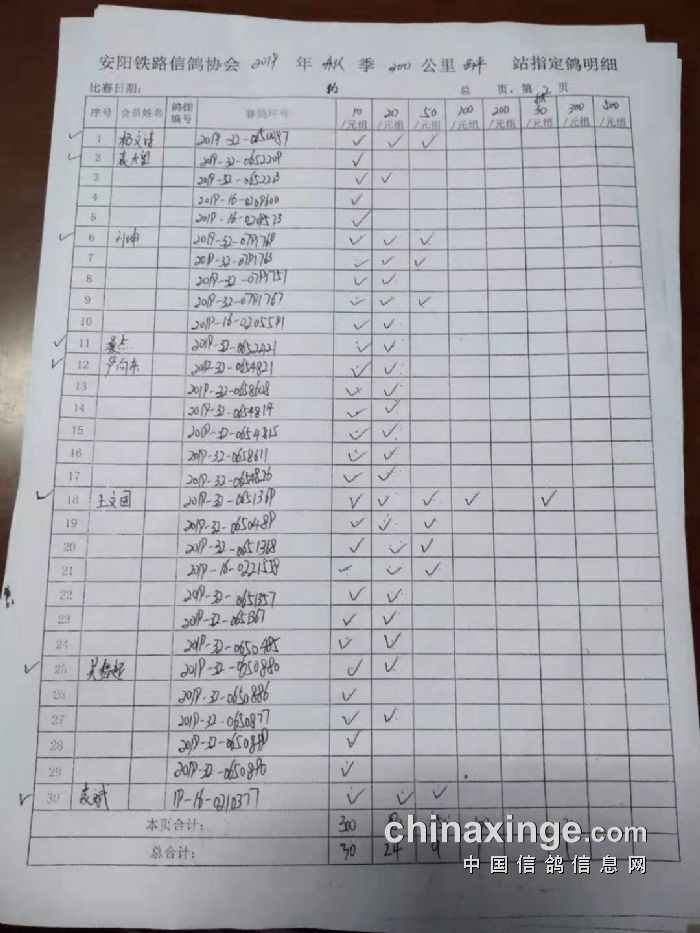 安阳铁路信鸽协会 2019 年 秋 季 200 公里 站指定鸽明细
比赛日期: 总 页, 第 2 页
序号 会员姓名 鸽棚编号 赛鸽环号 10/元组 20/元组 50/元组 100/元组 200/元组 30/元组 300/元组 500/元组
✓ 1 杨文清 2019-32-0650087 ✓ ✓ ✓
✓ 2 2019-32-0652209 ✓
3 2019-32-0652223 ✓ ✓
4 2019-16-0209600 ✓
5 2019-16-0209573 ✓
✓ 6 刘坤 2019-32-0791769 ✓ ✓ ✓
7 2019-32-0791763 ✓ ✓ ✓
8 2019-32-0791751 ✓ ✓
9 2019-32-0791767 ✓ ✓ ✓
10 2019-16-0205591 ✓ ✓
✓ 11 2019-32-0652421 ✓ ✓
✓ 12 严向东 2019-32-0654821 ✓ ✓
13 2019-32-0658608 ✓ ✓
14 2019-32-0654814 ✓ ✓
15 2019-32-0654815 ✓ ✓
16 2019-32-0658611 ✓ ✓
17 2019-32-0654826 ✓ ✓
✓ 18 王文国 2019-32-0651369 ✓ ✓ ✓ ✓ ✓
19 2019-32-0650489 ✓ ✓ ✓
20 2019-32-0651368 ✓ ✓ ✓
21 2019-16-0221539 ✓ ✓ ✓
22 2019-32-0651357 ✓ ✓
23 2019-32-0651367 ✓ ✓
24 2019-32-0650485 ✓ ✓
✓ 25 2019-32-0650880 ✓ ✓
26 2019-32-0650886 ✓
27 2019-32-0650877 ✓ ✓
28 2019-32-0650899 ✓
29 2019-32-0650890 ✓
✓ 30 袁斌 19-16-0210377 ✓ ✓ ✓
本页合计: 300
总合计: 30 24 9
chinaxinge.com
中国信鸽信息网